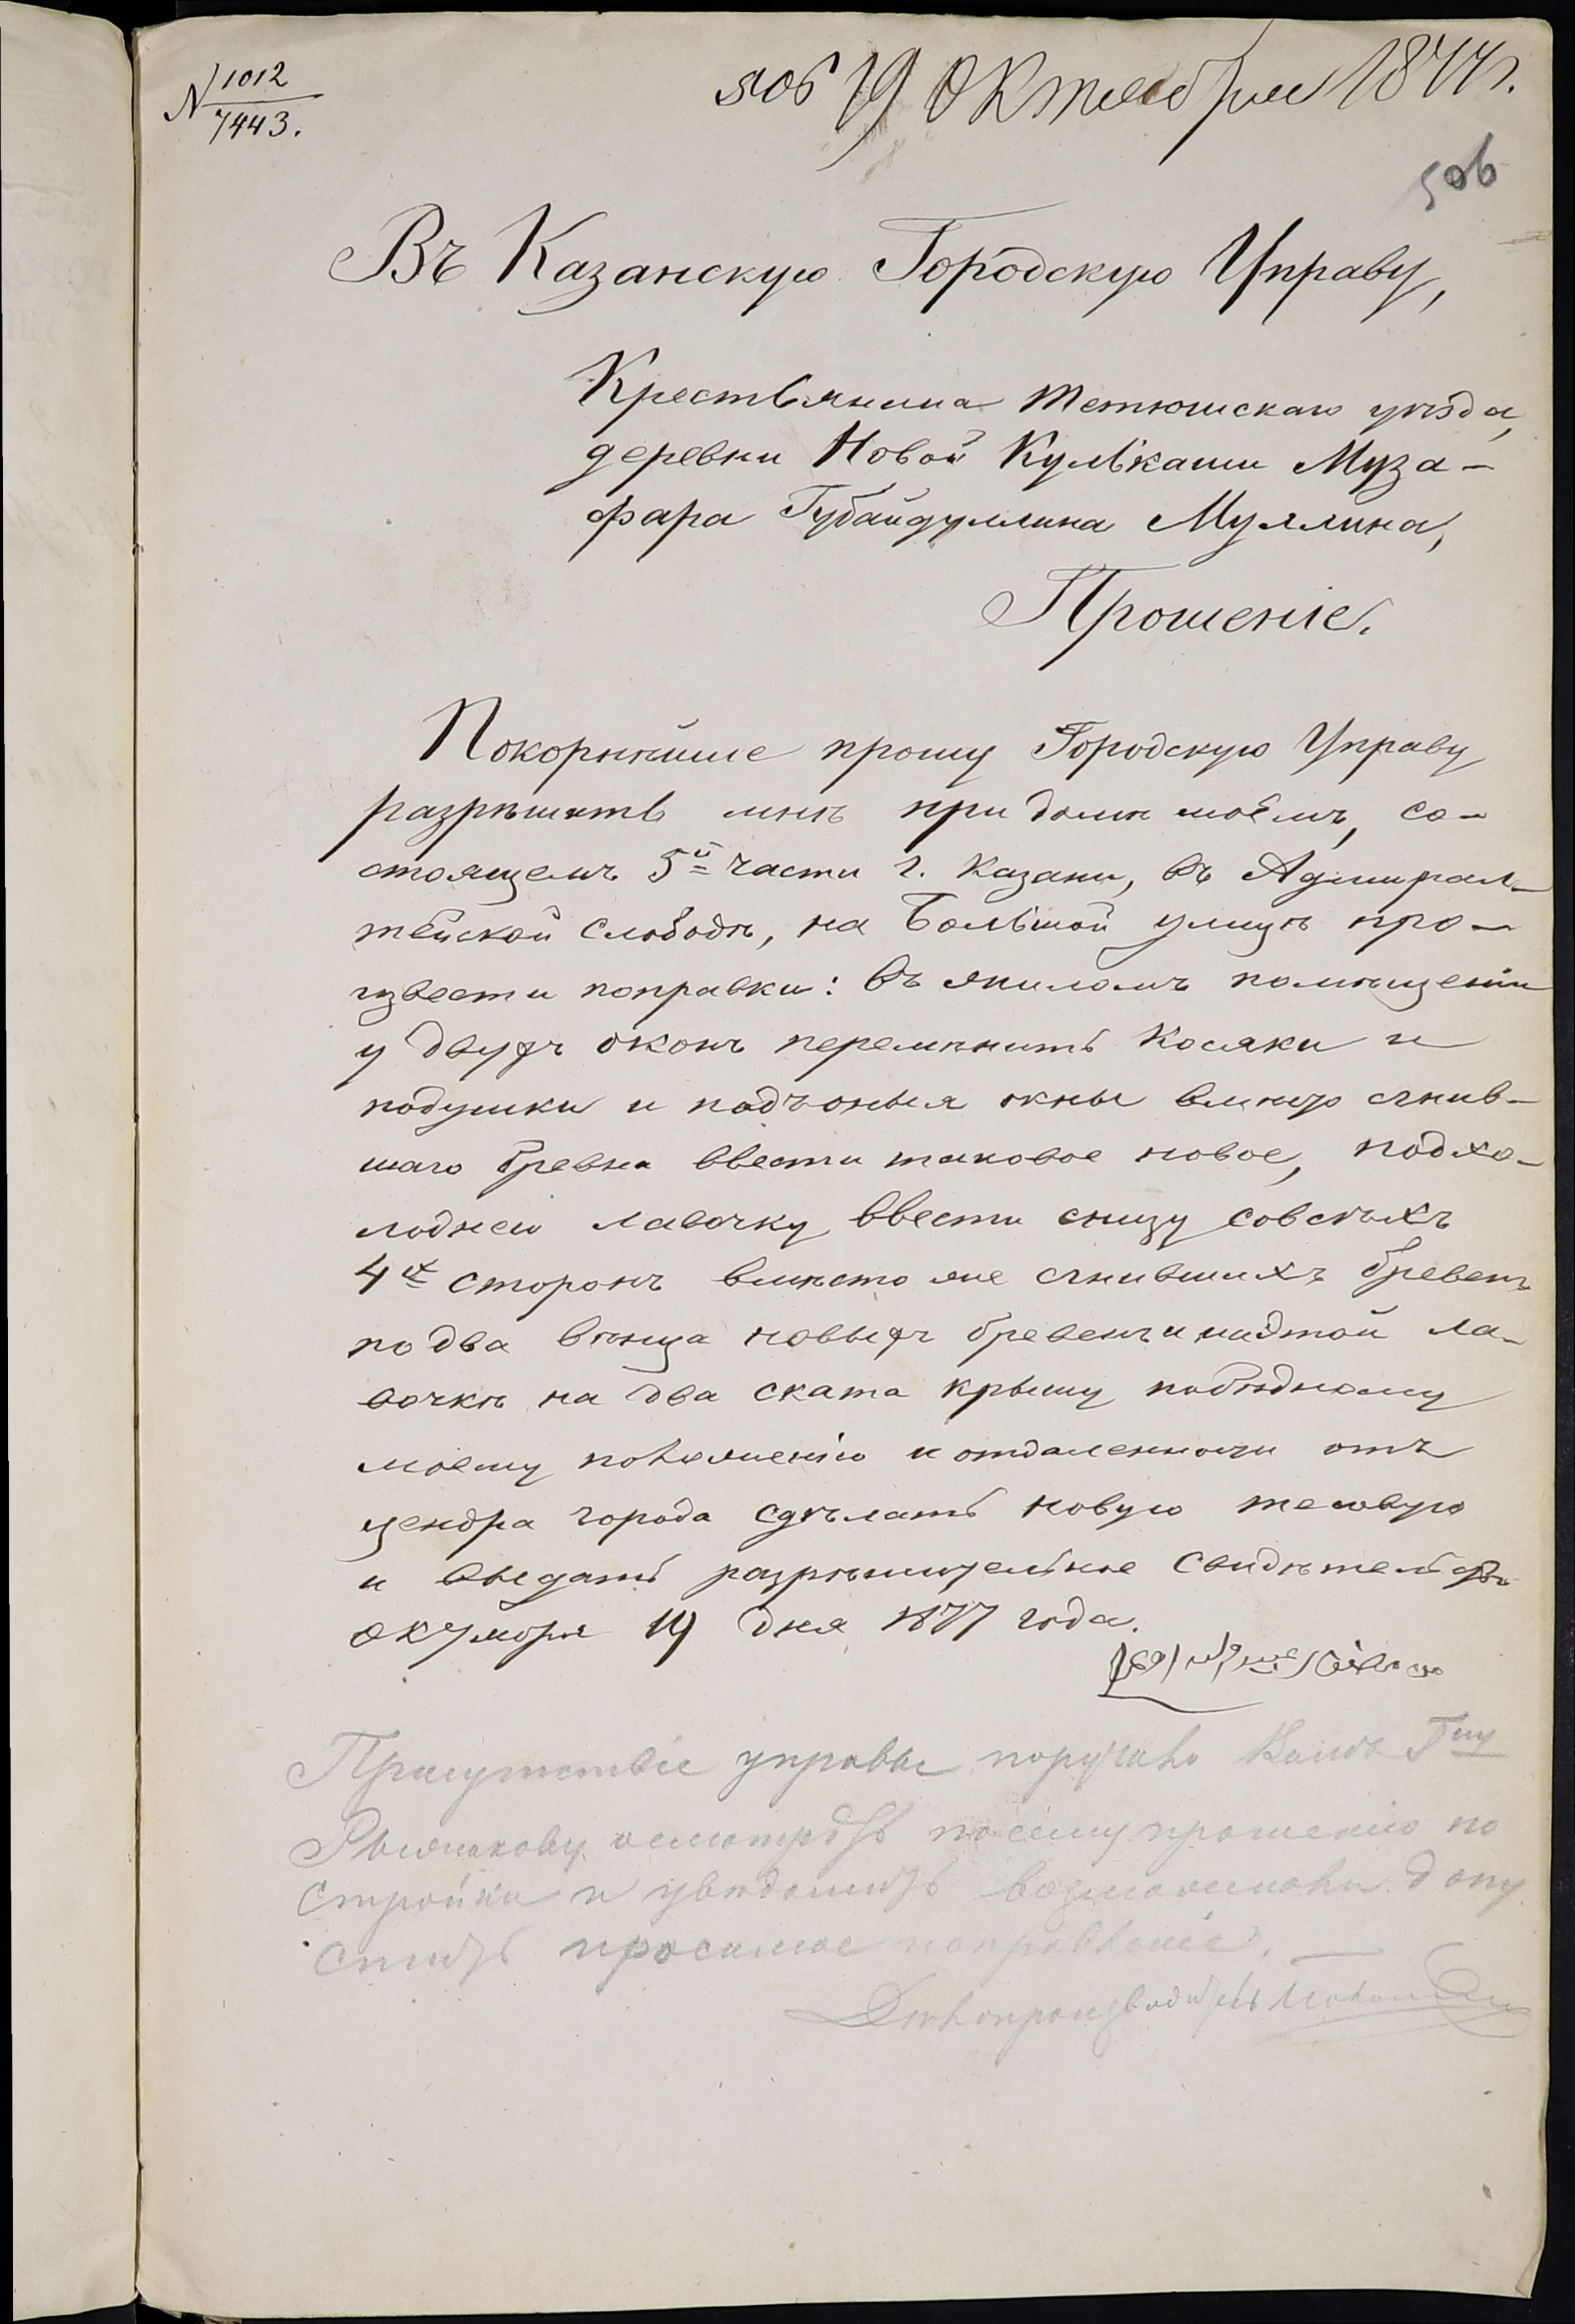 N 1012
7443.
19 Октября 1877 г.
506
Въ Казанскую Городскую Управу,
Крестьянина Тетюшскаго уѣзда,
деревни Новой Кулькаши Муза-
фара Губайдуллина Муллина,
Прошеніе.
Покорнѣйше прошу Городскую Управу
разрѣшить мнѣ при домѣ моемъ, со-
стоящемъ 5й части г. Казани, въ Адмирал-
тейской слободѣ, на Большой улицѣ про-
извести поправки: въ жиломъ помѣщеніи
у двухъ оконъ перемѣнить косяки и
подушки и подъоныя окны вмѣсто сгнив-
шаго бревна ввести таковое новое, подхо-
лоднею лавочку ввести снизу совсѣхъ
4х сторонъ вмѣсто же сгнившихъ бревенъ
по два вѣнца новыхъ бревенъ и надтой ла-
вочкѣ на два ската крышу побѣдному
моему положенію и отдаленности отъ
цендра города сдѣлать новую тесовую
и выдать разрѣшительное свидѣтельство
Октября 19 дня 1877 года.
Присутствіе управы поручило Гну
осмотрѣть по сему прошенію по
стройки и увѣдомить возможноли допу
стить просимое поправленіе.
Дѣлопроизводитель